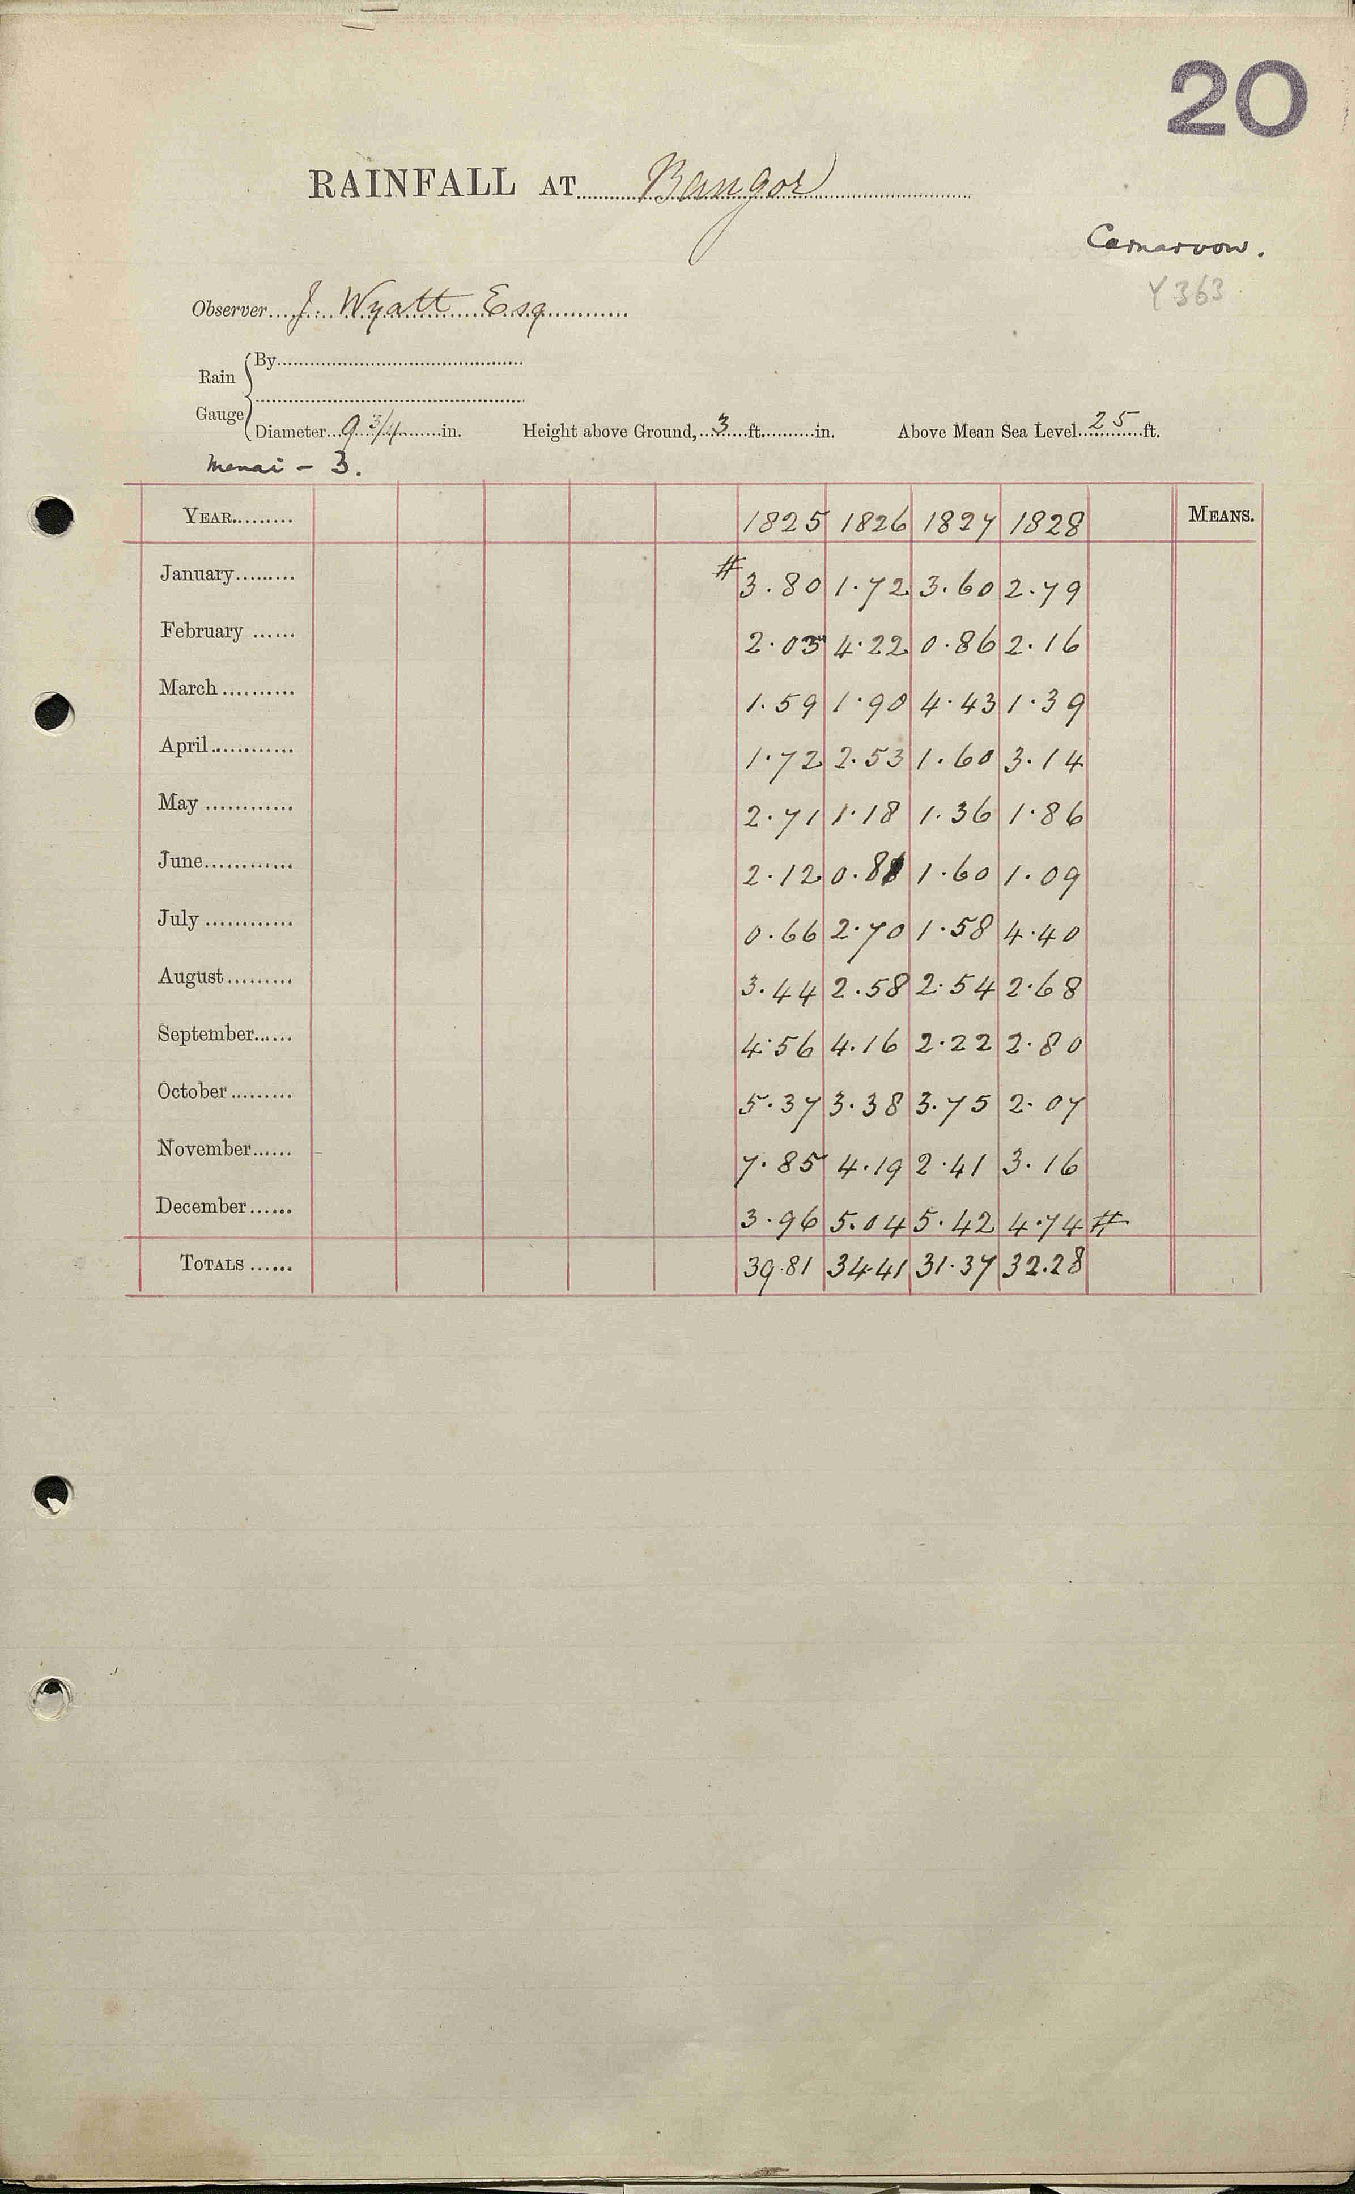 20
RAINFALL AT Bangor
Carnarvon.
Y 363
Observer J. Wyatt Esq
Rain Gauge { By
Diameter 9 3/4 in. Height above Ground, 3 ft. in. Above Mean Sea Level 25 ft.
Menai - 3.
YEAR 1825 1826 1827 1828 MEANS.
January # 3.80 1.72 3.60 2.79
February 2.03 4.22 0.86 2.16
March 1.59 1.90 4.43 1.39
April 1.72 2.53 1.60 3.14
May 2.71 1.18 1.36 1.86
June 2.12 0.81 1.60 1.09
July 0.66 2.70 1.58 4.40
August 3.44 2.58 2.54 2.68
September 4.56 4.16 2.22 2.80
October 5.37 3.38 3.75 2.07
November 7.85 4.19 2.41 3.16
December 3.96 5.04 5.42 4.74 #
TOTALS 39.81 34.41 31.37 32.28